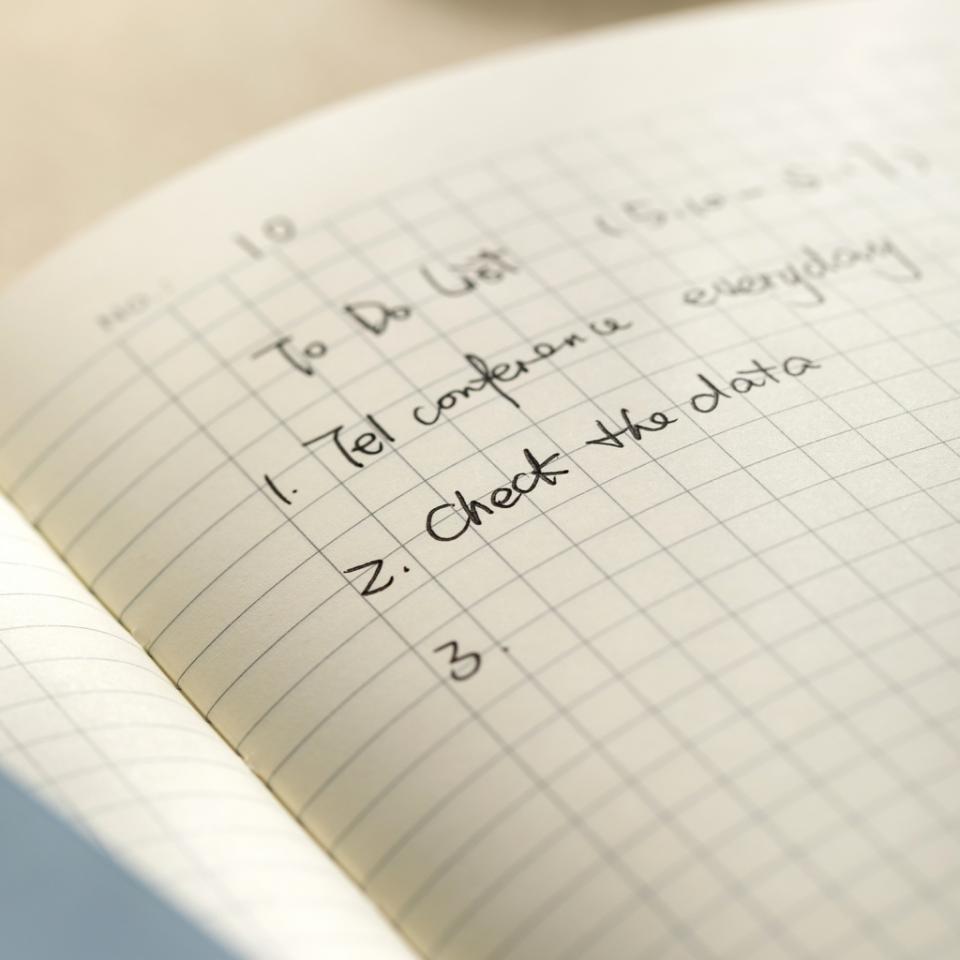 No.
10
To Do List
1. Tel conference everyday
2. Check the data
3.